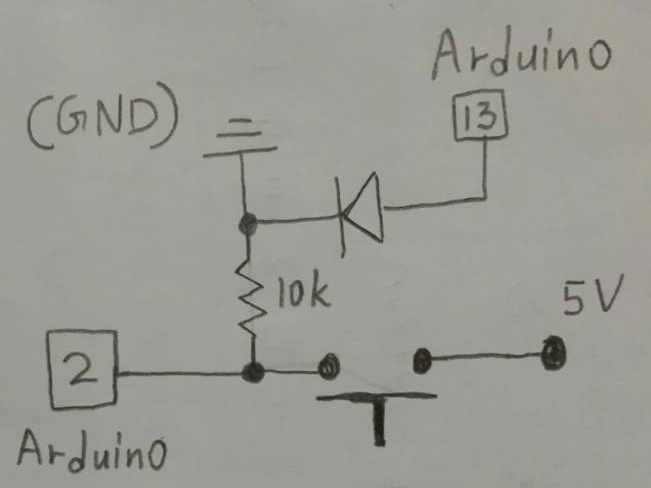 Arduino
13
(GND)
10k
5V
2
Arduino